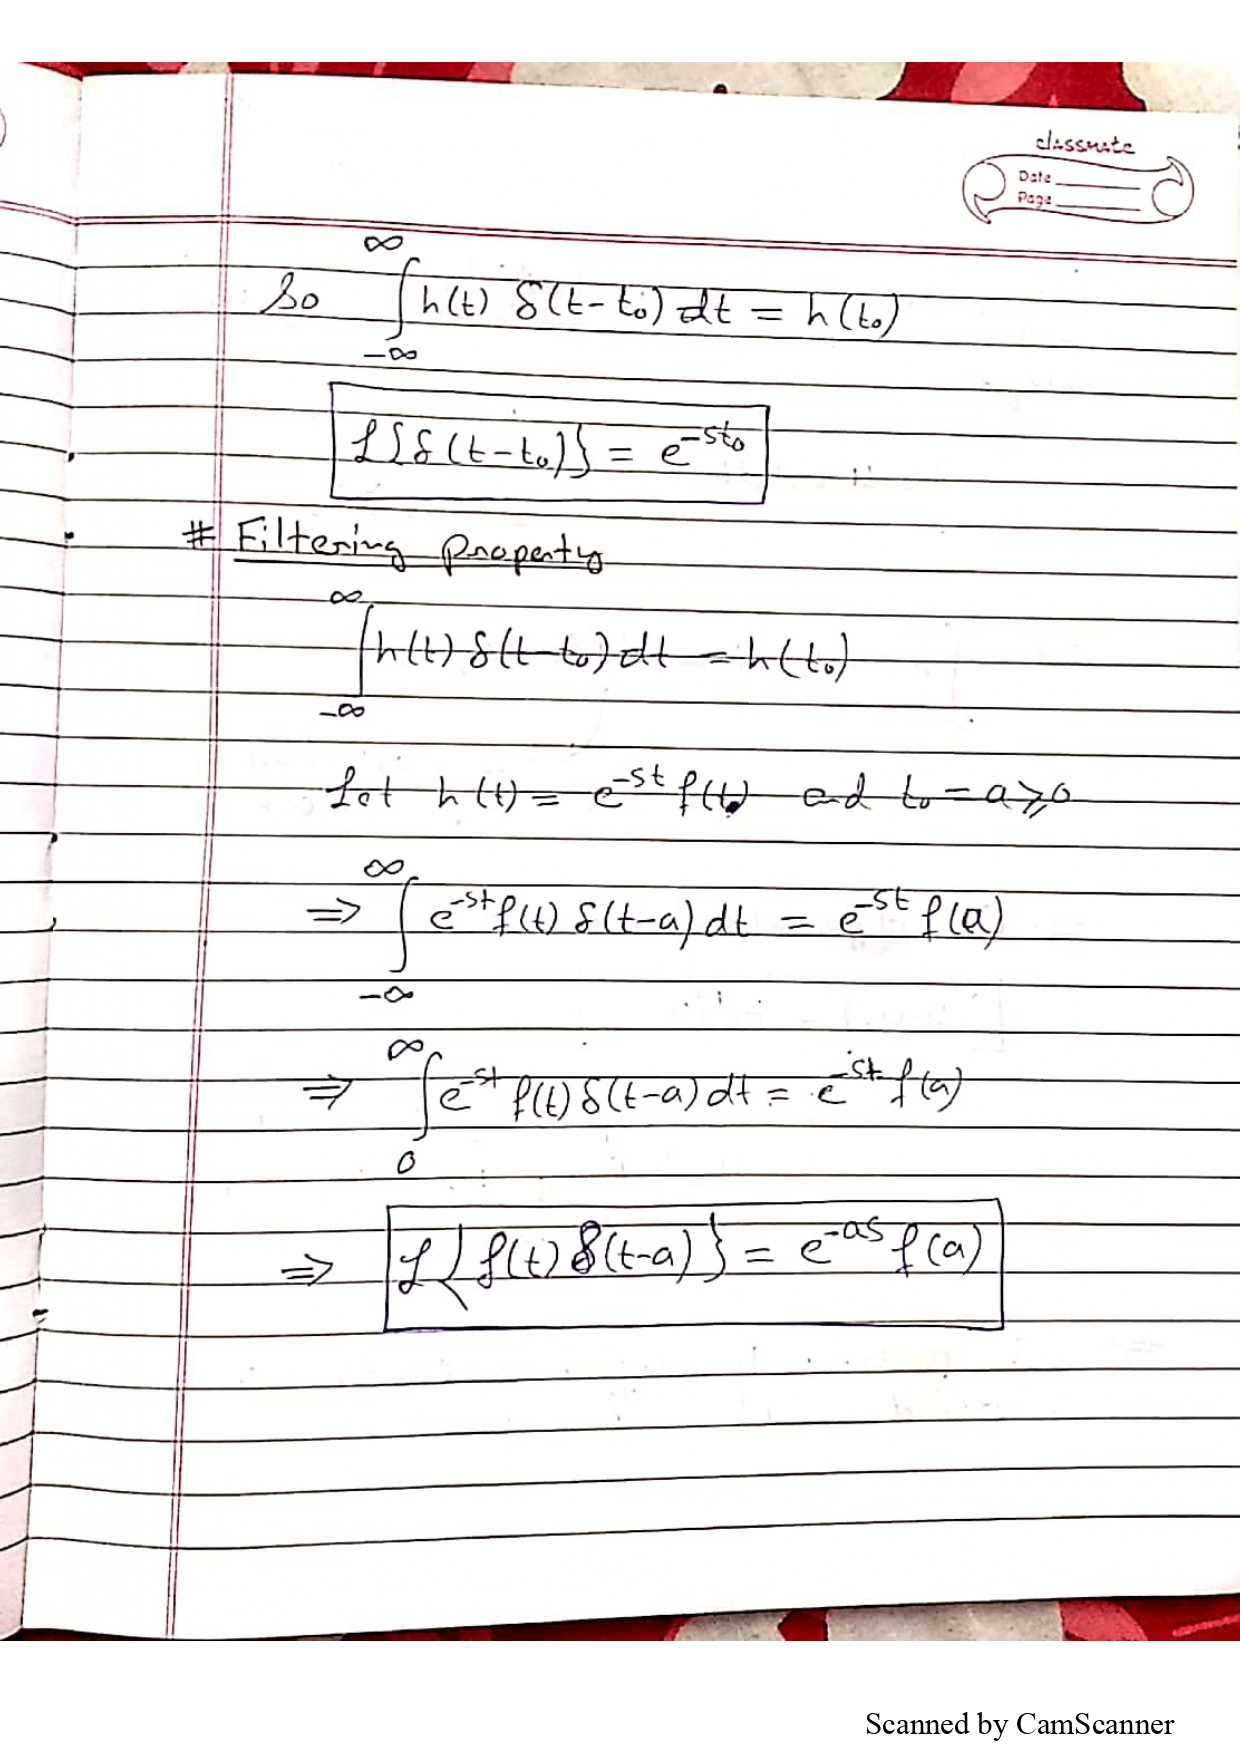 classmate
Date
Page
So ∫_{-∞}^{∞} h(t) δ(t-t₀) dt = h(t₀)
ℒ{δ(t-t₀)} = e^{-st₀}
# Filtering property
∫_{-∞}^{∞} h(t) δ(t-t₀) dt = h(t₀)
Let h(t) = e^{-st} f(t) and t₀ = a ≥ 0
⇒ ∫_{-∞}^{∞} e^{-st} f(t) δ(t-a) dt = e^{-st} f(a)
⇒ ∫_{0}^{∞} e^{-st} f(t) δ(t-a) dt = e^{-st} f(a)
⇒ ℒ{f(t) δ(t-a)} = e^{-as} f(a)
Scanned by CamScanner